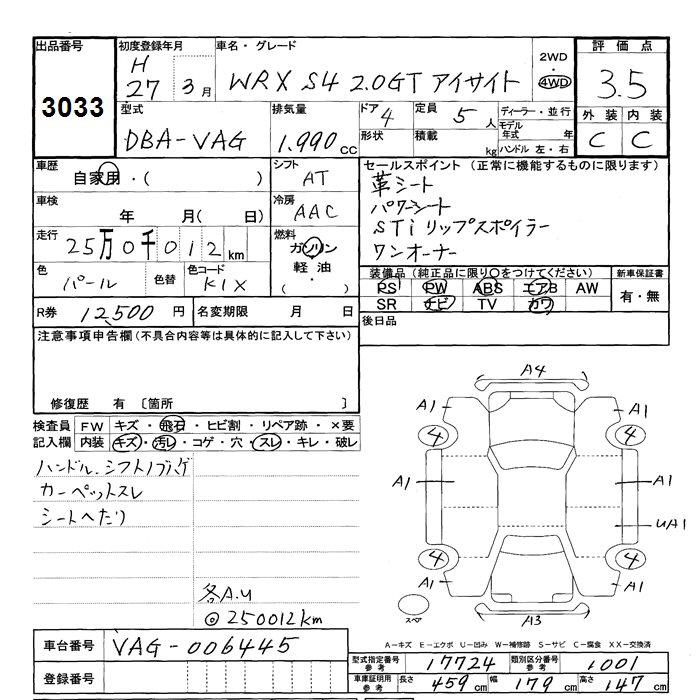 出品番号 初度登録年月 車名・グレード 2WD・4WD 評価点
3033 H 27年 3月 WRX S4 2.0GT アイサイト 3.5
型式 排気量 ドア 4 定員 5人 ディーラー・並行 外装 内装
DBA-VAG 1.990 cc 形状 積載 kg モデル年式 年 ハンドル 左・右 C C
車歴 自家用・( ) シフト AT セールスポイント (正常に機能するものに限ります)
車検 年 月( 日) 冷房 AAC 革シート
パワーシート
STi リップスポイラー
ワンオーナー
走行 25万0千012km 燃料 ガソリン 軽油・( )
色 パール 色替 色コード K1X
装備品 (純正品に限り〇をつけてください) 新車保証書
PS PW ABS エアB AW 有・無
SR ナビ TV カワ
R券 12,500円 名変期限 月 日 後日品
注意事項申告欄(不具合内容等は具体的に記入して下さい)
修復歴 有 〔箇所 〕
検査員記入欄 FW キズ・飛石・ヒビ割・リペア跡・×要
内装 キズ・汚レ・コゲ・穴・スレ・キレ・破レ
ハンドル、シフトノブハゲ
カーペットスレ
シートへたり
各A.U
◎250012km
A4
A1 A1
4 4
A1 A1
UA1
4 4
A1 A1
スペア A3
A-キズ E-エクボ U-凹み W-補修跡 S-サビ C-腐食 XX-交換済
車台番号 VAG-006445
登録番号
型式指定番号 参考 17724 類別区分番号 参考 1001
車庫証明用 参考 長さ 459cm 幅 179cm 高さ 147cm